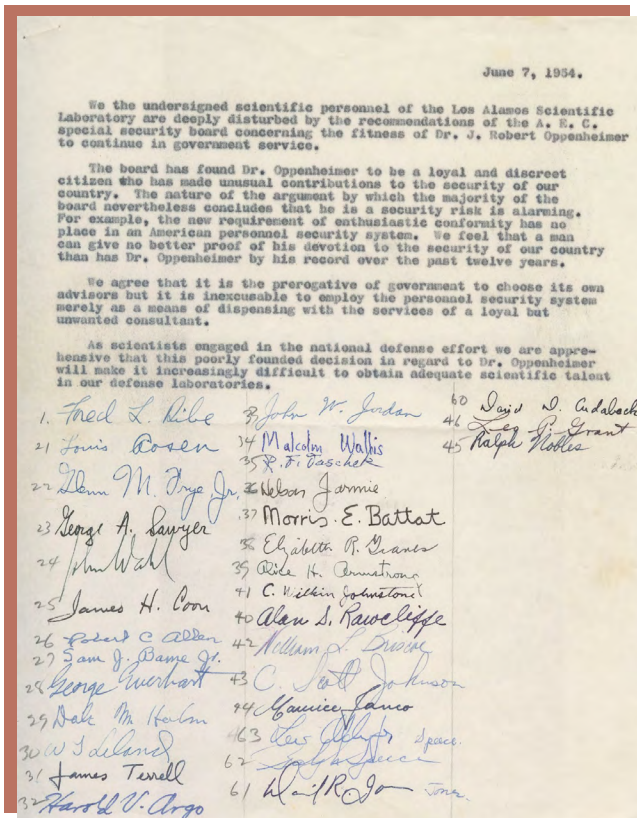 June 7, 1954.
We the undersigned scientific personnel of the Los Alamos Scientific
Laboratory are deeply disturbed by the recommendations of the A. E. C.
special security board concerning the fitness of Dr. J. Robert Oppenheimer
to continue in government service.
The board has found Dr. Oppenheimer to be a loyal and discreet
citizen who has made unusual contributions to the security of our
country. The nature of the argument by which the majority of the
board nevertheless concludes that he is a security risk is alarming.
For example, the new requirement of enthusiastic conformity has no
place in an American personnel security system. We feel that a man
can give no better proof of his devotion to the security of our country
than has Dr. Oppenheimer by his record over the past twelve years.
We agree that it is the prerogative of government to choose its own
advisors but it is inexcusable to employ the personnel security system
merely as a means of dispensing with the services of a loyal but
unwanted consultant.
As scientists engaged in the national defense effort we are appre-
hensive that this poorly founded decision in regard to Dr. Oppenheimer
will make it increasingly difficult to obtain adequate scientific talent
in our defense laboratories.
1. Fred L. Ribe
21 Louis Rosen
22 Glenn M. Frye, Jr.
23 George A. Sawyer
24 John Wahl
25 James H. Coon
26 Robert C Allen
27 Sam J. Bame Jr.
28 George Everhart
29 Dale M. Holm
30 W T Leland
31 James Terrell
32 Harold V. Argo
33 John W. Jordan
34 Malcolm Wallis
35 R. F. Taschek
36 Nelson Jarmie
37 Morris E. Battat
38 Elizabeth R. Graves
39 Alice H. Armstrong
41 C. Wilkin Johnstone
40 Alan S. Rawcliffe
42 William L. Briscoe
43 C. Scott Johnson
44 Maurice
63
62
61 David R.
60 David D. Cudaback
46 P. Grant
45 Ralph Nobles